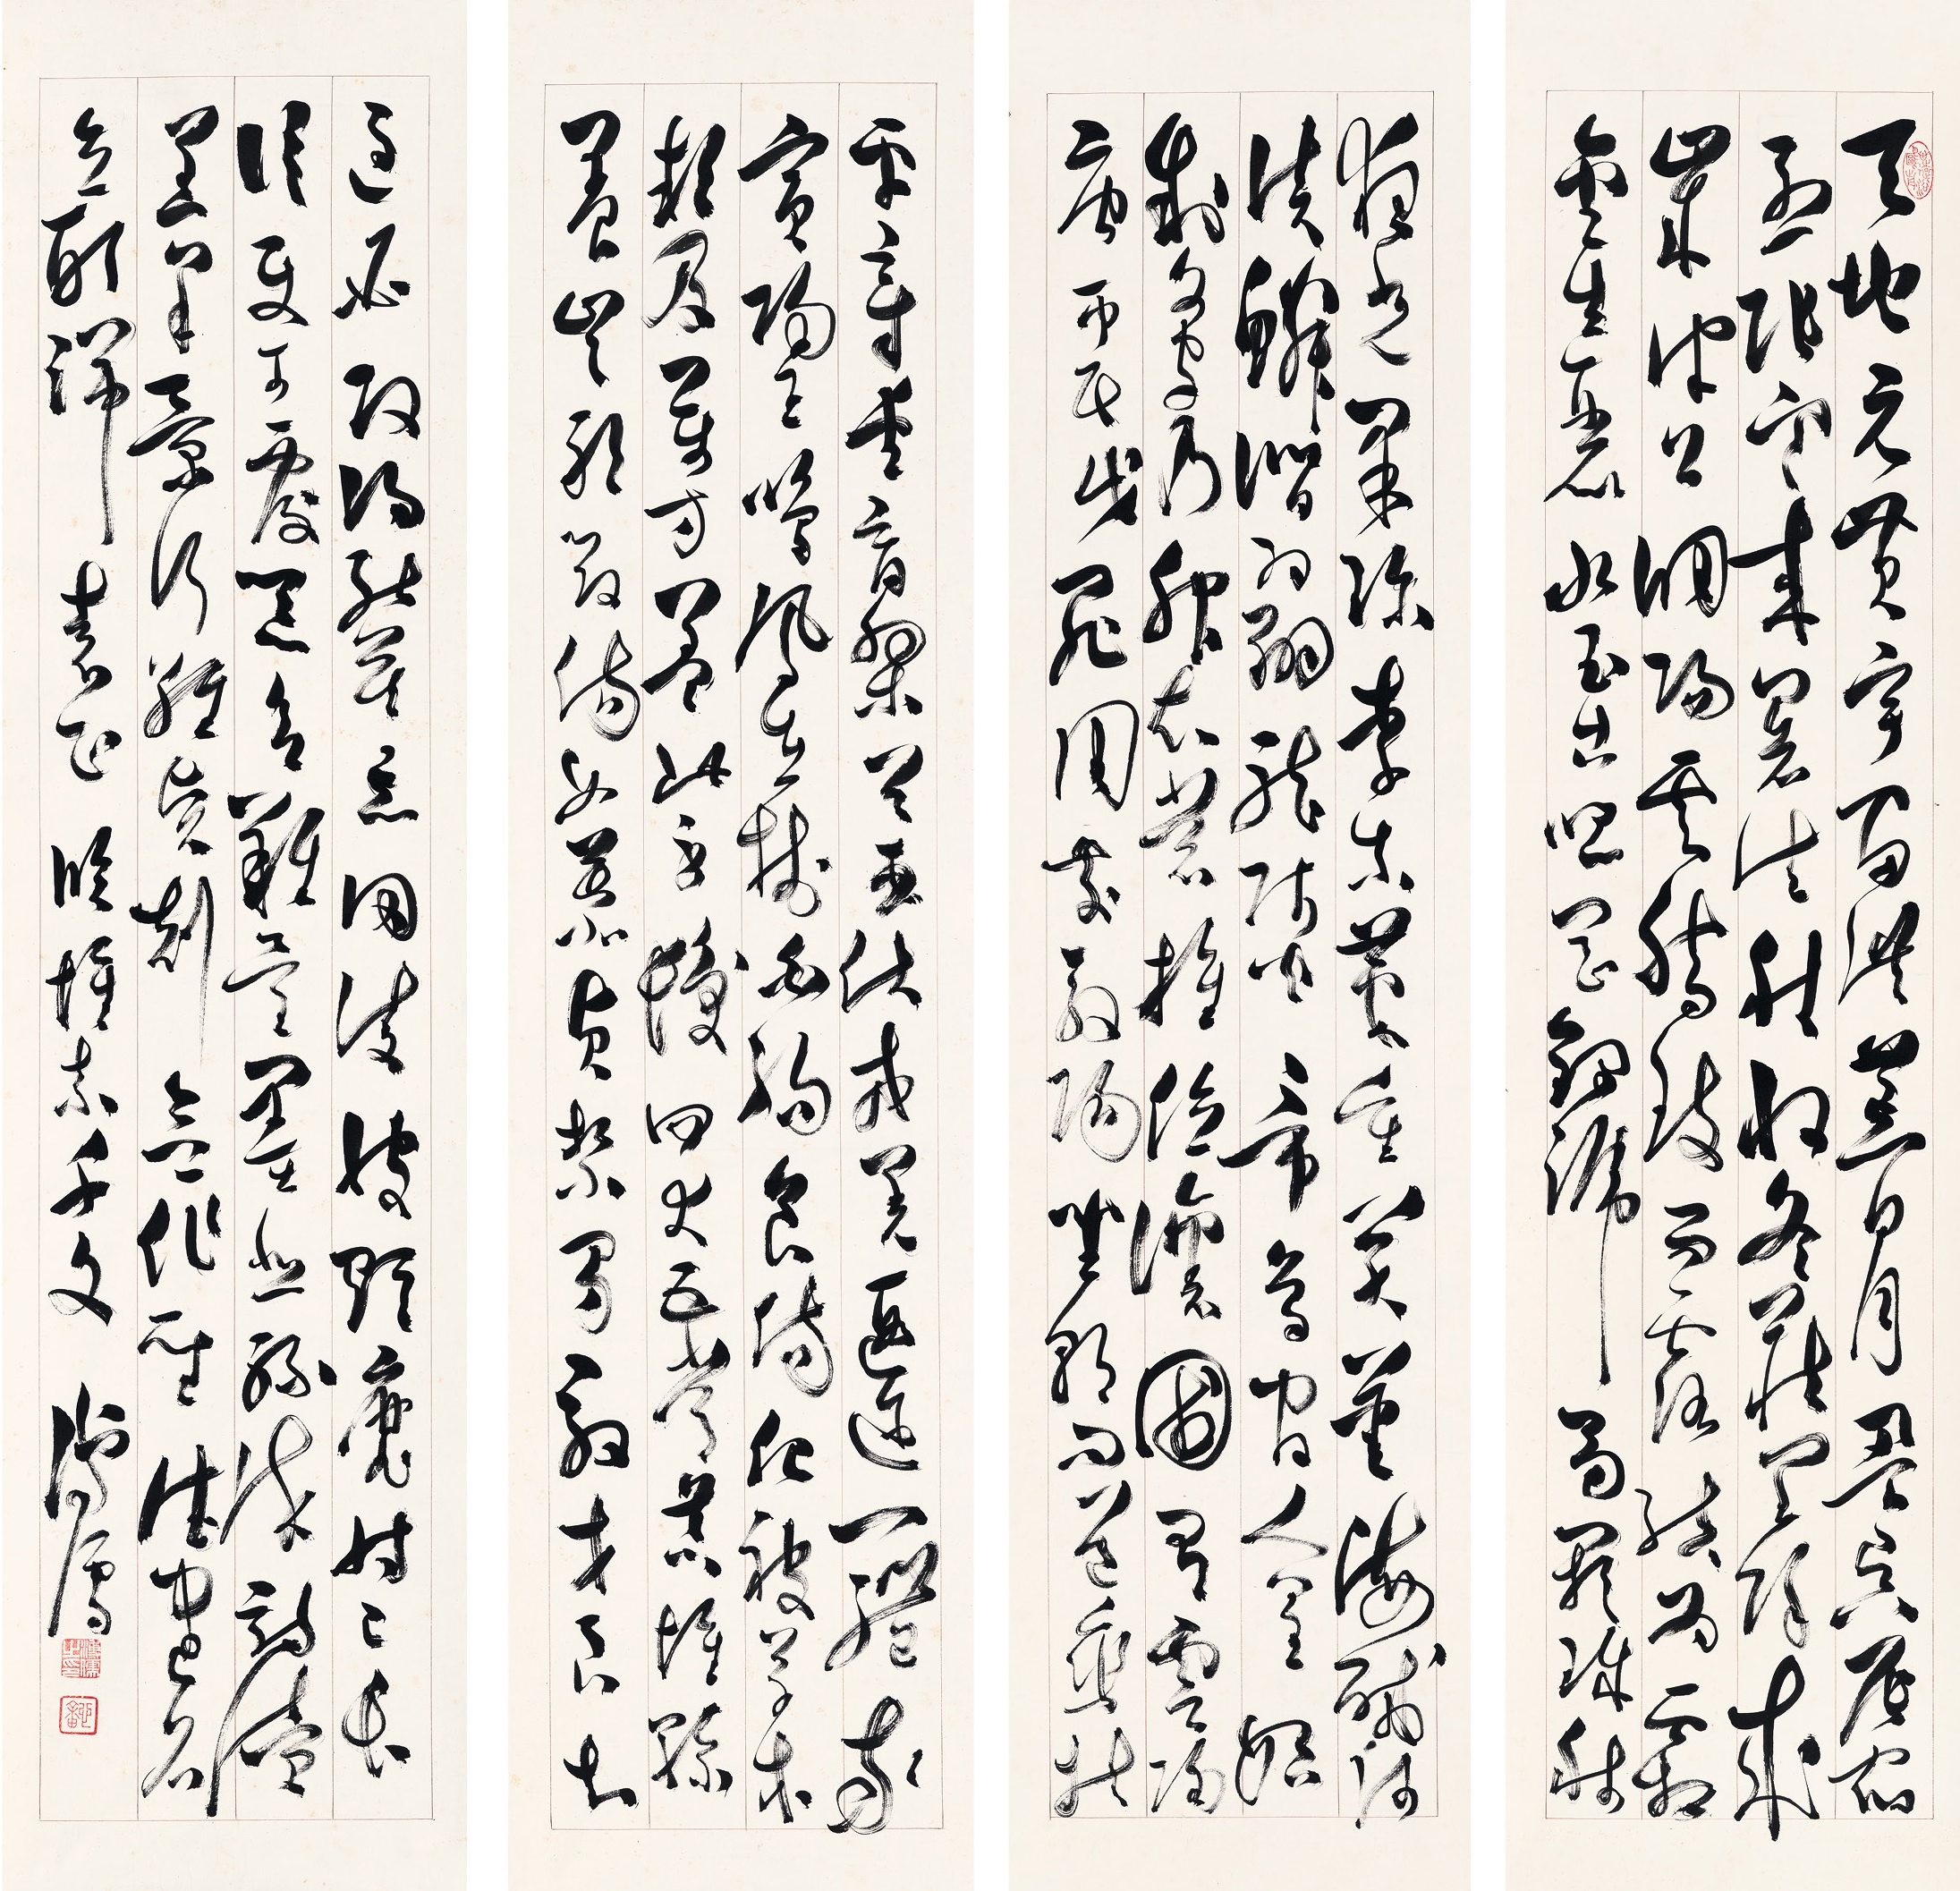 天地玄黃宇宙洪荒日月盈昃辰宿
列張寒來暑往秋收冬藏閏餘成
歲律呂調陽雲騰致雨露結為霜
金生麗水玉出崐崗劍號巨闕珠稱
夜光菓珍李柰菜重芥薑海鹹河
淡鱗潛羽翔龍師火帝鳥官人皇始
制文字乃服衣裳推位讓國有虞陶
唐弔民伐罪周發殷湯坐朝問道垂拱
平章愛育黎首臣伏戎羌遐邇壹體率
賓歸王鳴鳳在樹白駒食場化被草木
賴及萬方蓋此身髮四大五常恭惟鞠
養豈敢毀傷女慕貞絜男效才良知
過必改得能莫忘罔談彼短靡恃己長
信使可覆器欲難量墨悲絲染詩讚
羔羊景行維賢剋念作聖德建名
立形端表正 臨懷素千文 溥儒